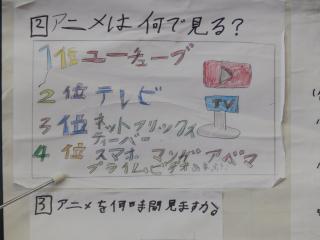 2 アニメは何で見る?
1位 ユーチューブ
2位 テレビ
TV
3位 ネットフリックス
ティーバー
4位 スマホ マンガ アベマ
プライムビデオ
3 アニメを何時間見ますか